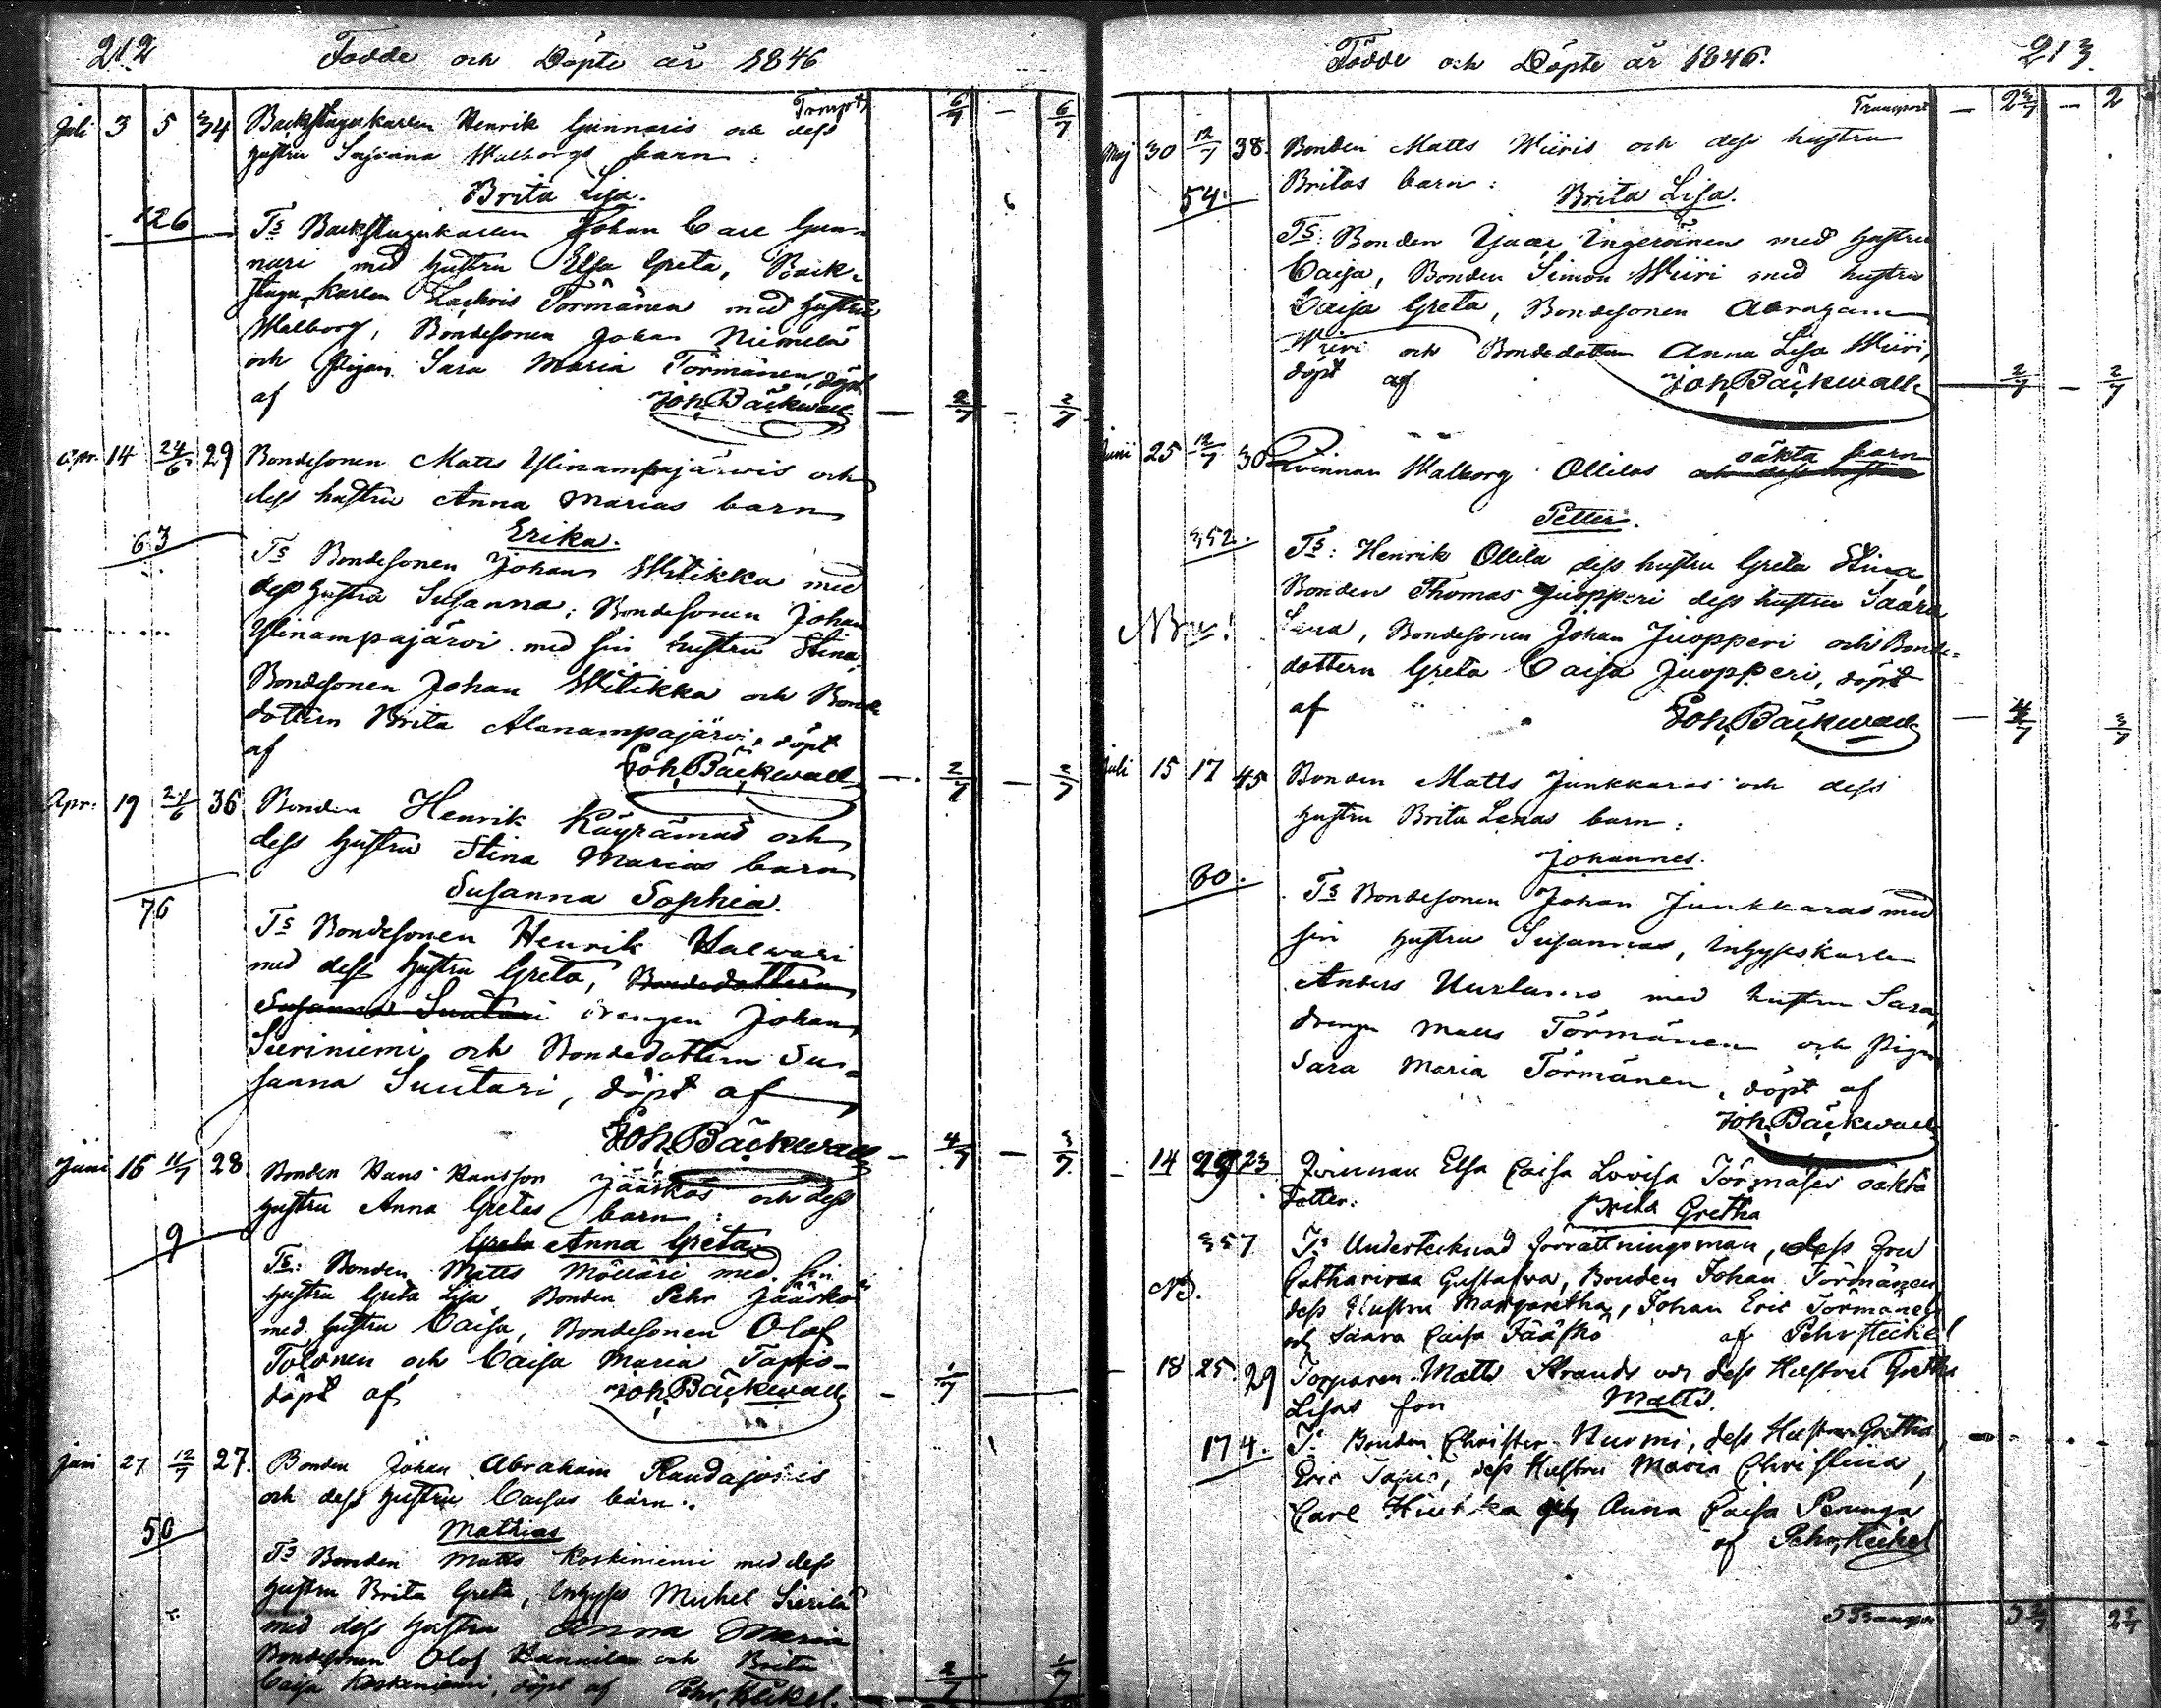 212 Födde och Döpte år 1846
Transpt 6/7 — 6/7
Juli 3 5 34 Backstugukarlen Henrik Gunnaris och dess
hustru Susanna Walborgs barn:
Brita Lisa.
126 Ts Backstugukarlen Johan Carl Gun-
nari med hustru Elsa Greta, Back-
stugu-Karlen Zachris Törmänen med hustru
Walborg, Bondesonen Johan Niemelä
och Pigan Sara Maria Törmänen, döpt
af Joh. Bäckwall — 2/7 — 2/7
Apr. 14 24/6 29 Bondesonen Matts Ylinampajärvis och
dess hustru Anna Marias barn
Erika.
63 Ts Bondesonen Johan Witikka med
dess hustru Susanna; Bondesonen Johan
Ylinampajärvi med sin hustru Stina,
Bondesonen Johan Witikka och Bonde
dottern Brita Alanampajärvi, döpt
af Joh. Bäckwall — 2/7 — 2/7
Apr. 19 24/6 36 Bonden Henrik Käyrämäs och
dess hustru Stina Marias barn
Susanna Sophia.
76 Ts Bondesonen Henrik Halvari
med dess hustru Greta, Bondedottern
Susanna Suutari drengen Johan
Sieriniemi och Bondedottern Su-
sanna Suutari, döpt af
Joh. Bäckwall — 4/7 — 3/7
Juni 16 11/7 28 Bonden Hans Hansson Jääskös och dess
hustru Anna Gretas barn:
Greta Anna Greta
9 Ts: Bonden Matts Mölläri med sin
hustru Greta Lisa Bonden Pehr Jääskö
med hustru Caisa, Bondesonen Olof
Tolonen och Caisa Maria Tapio-
döpt af Joh. Bäckwall — 1/7 —
Juni 27 12/7 27. Bonden Johan Abraham Raudajokis
och dess hustru Caisas barn:
Mathias
50 Ts Bonden Matts Koskiniemi med dess
hustru Brita Greta, Inhyses Michel Sierilä
med dess hustru Anna Maria
Bondesonen Olof Hannila och Brita
Caisa Koskiniemi, döpt af Pehr Heikel. 2/7 1/7
Födde och Döpte år 1846. 213.
Transport — 2 3/7 — 2
Maj 30 12/7 38. Bonden Matts Wiiris och dess hustru
Britas barn:
54. Brita Lisa.
Ts: Bonden Isaac Ingeroinen med hustru
Caisa, Bonden Simon Wiiri med hustru
Caisa Greta, Bondesonen Abraham
Wiiri och Bondedottern Anna Lisa Wiiri,
döpt af Joh. Bäckwall — 2/7 — 2/7
Juni 25 12/7 30 Qvinnan Walborg Ollilas och dess hustru oäkta barn
Petter.
352. Ts: Henrik Ollila dess hustru Greta Stina,
Bonden Thomas Juopperi dess hustru Saara
NB! Bondesonen Johan Juopperi och Bonde-
dottern Greta Caisa Juopperi, döpt
af Joh. Bäckwall — 3/7
Juli 15 17 45 Bonden Matts Junkkaras och dess
hustru Brita Lenas barn:
Johannes.
60. Ts Bondesonen Johan Junkkaras med
sin hustru Susanna, Inhyseskarlen
Anders med hustru Sara,
Drengen Matts Törmänen och Pigan
Sara Maria Törmänen, döpt af
Joh. Bäckwall
— 14 29 23 Qvinnan Elsa Caisa Lovisa Törmäses oäkta
Dotter: Brita Gretha
357 Ts Undertecknad förrättningsman, dess Fru
Catharina Gustafva, Bonden Johan Törmänen
NB. dess Hustru Margaretha, Johan Eric Törmänen
och Saara Caisa Jääskö af Pehr Heikel
— 18 25. 29 Torparen Matts Strands och dess Hustru Gretha
Lisas son Matts.
174. Ts Bonden Christer Nurmi, dess Hustru Gretha,
Eric Tapio, dess Hustru Maria Christina,
Carl och Anna Caisa Perunga
af Pehr Heikel
Transp